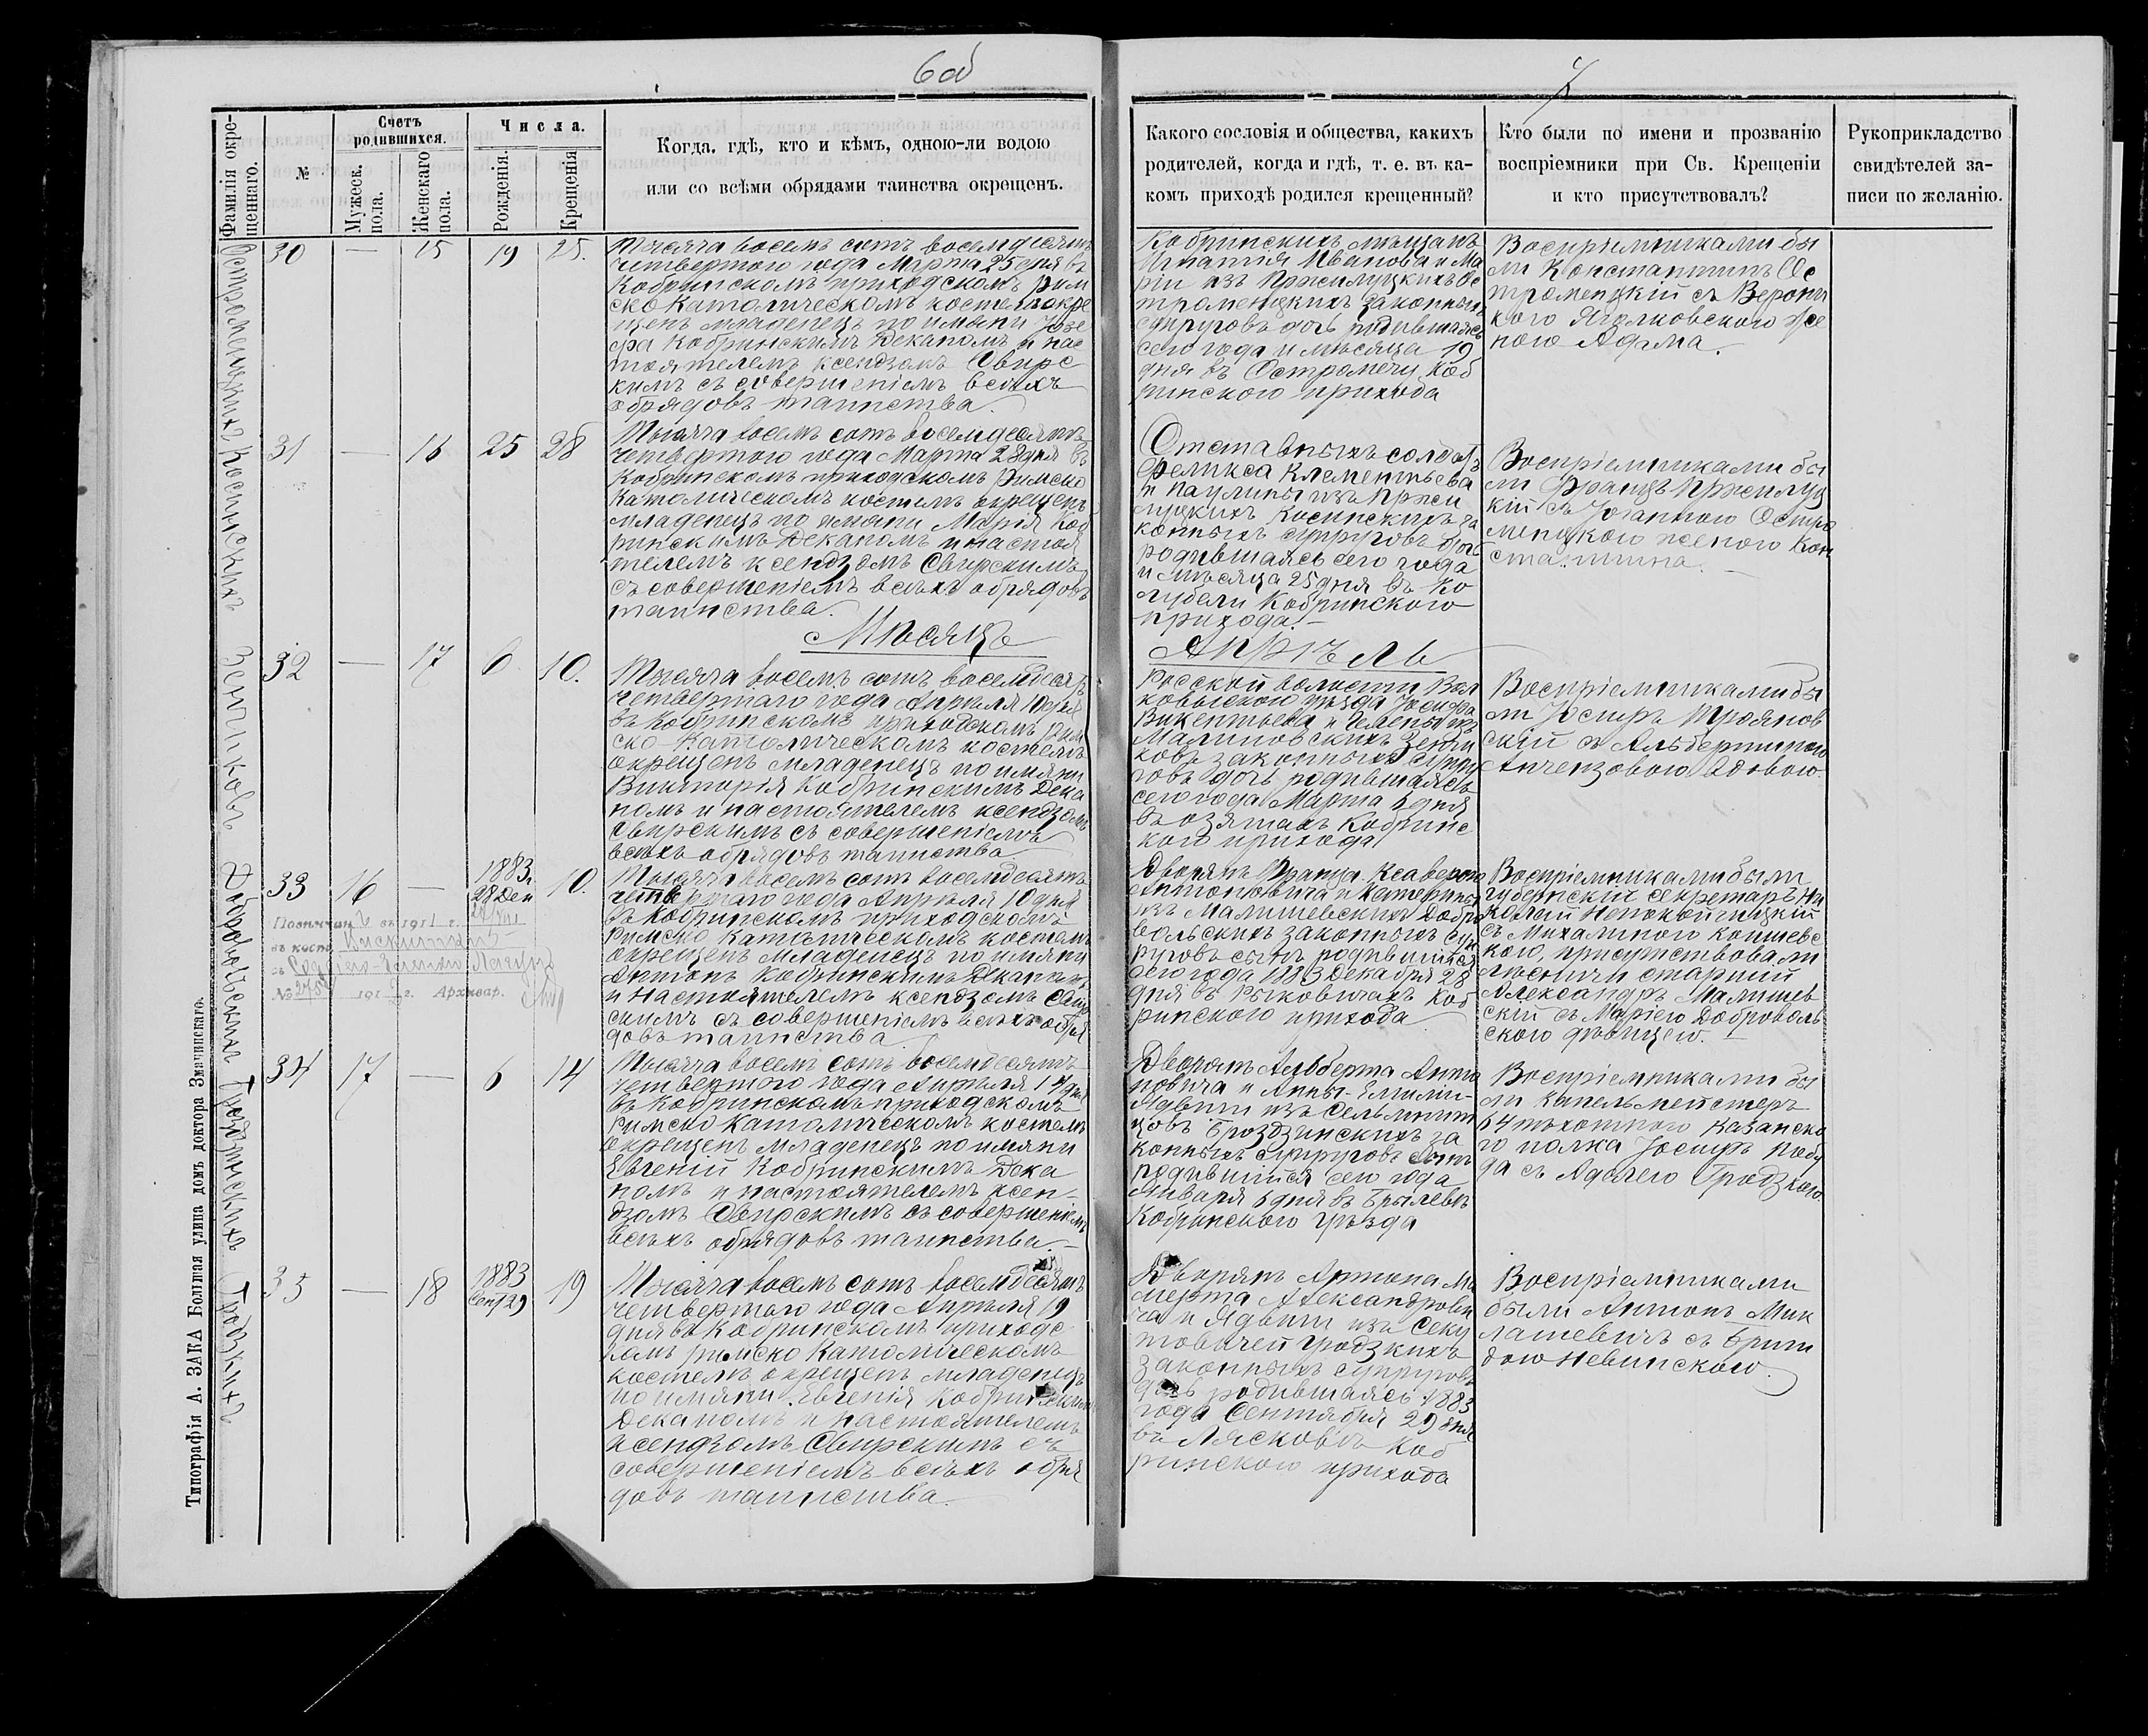 6 об
7
Фамилія окре-
щеннаго.
№
Счетъ
родившихся.
Мужеск.
пола.
Женскаго
пола.
Числа.
Рожденія.
Крещенія
Когда, гдѣ, кто и кѣмъ, одною-ли водою
или со всѣми обрядами таинства окрещенъ.
Какого сословія и общества, какихъ
родителей, когда и гдѣ, т. е. въ ка-
комъ приходѣ родился крещенный?
Кто были по имени и прозванію
воспріемники при Св. Крещеніи
и кто присутствовалъ?
Рукоприкладство
свидѣтелей за-
писи по желанію.
Остроменцкихъ
30 — 15 19 25.
Тысяча восемь сотъ восемдесятъ
четвертого года Марта 25 дня въ
Кобринскомъ приходскомъ Рим
ско Католическомъ костелѣ окре
щенъ младенецъ по имяни Юзе
фа Кобринскимъ Деканомъ и нас
тоятелемъ ксендзомъ Свирс
кимъ съ совершеніемъ всѣхъ
обрядовъ таинства.
Кобринскихъ мѣщанъ
Игнатія Иванова и Ма
ріи изъ Пржилуцкихъ Ос
троменцкихъ законныхъ
супруговъ дочь родившаяся
сего года и мѣсяца 19
дня въ Остромечи Коб
ринского прихода
Воспріемниками бы
ли Константинъ Ос
троменцкій съ Верони
кою Яголковскою же
ною Адама.
Косинскихъ
31 — 16 25 28
Тысяча восемь сотъ восемдесятъ
четвертого года Марта 28 дня въ
Кобринскомъ приходскомъ Римско
Католическомъ костелѣ окрещенъ
младенецъ по имяни Марія Коб
ринскимъ Деканомъ и настоя
телемъ ксендзомъ Свирскимъ
съ совершеніемъ всѣхъ обрядовъ
таинства.
Отставныхъ солдатъ
Феликса Клементьева
и Паулины изъ Пржи
луцкихъ Косинскихъ за
конныхъ супруговъ дочь
родившаяся сего года
и мѣсяца 25 дня въ Ко
лубели Кобринского
прихода. —
Воспріемниками бы
ли Францъ Пржилуц
кій съ Іоанною Остро
менцкою женою Кон
стантина. —
Мѣсяцъ
Апрѣль
Зенчиковъ
32 — 17 6 10.
Тысяча восемь сотъ восемдесятъ
четвертаго года Апрѣля 10 дня
въ Кобринскомъ приходскомъ Рим
ско-Католическомъ костелѣ
окрещенъ младенецъ по имяни
Викторія Кобринскимъ Дека
номъ и настоятелемъ ксендзомъ
Свирскимъ съ совершеніемъ
всѣхъ обрядовъ таинства
Росской волости Вол
ковыского уѣзда Іосифа
Викентьева и Елены изъ
Малиновскихъ Зенчи
ковъ законныхъ супру
говъ дочь родившаяся
сего года Марта 6 дня
въ Озятахъ Кобринс
кого прихода
Воспріемниками бы
ли Іосифъ Трояновс
скій съ Альбертиною
вдовою.
Добровольскихъ
33 16 — 1883 г.
28 Дек 10.
Тысяча восемь сотъ восемдесятъ
четвертаго года Апрѣля 10 дня
въ Кобринскомъ приходскомъ
Римско Католическомъ костелѣ
окрещенъ младенецъ по имяни
Антонъ Кобринскимъ Деканомъ
и настоятелемъ ксендзомъ Свир
скимъ съ совершеніемъ всѣхъ обря
довъ таинства
Повѣнчан въ 1911 г.
въ кост.
съ
№ 191 г. Архивар.
Дворянъ Франца Ксаверого
Антоновича и Катерины
изъ Малишевскихъ Добро
вольскихъ законныхъ суп
руговъ сынъ родившійся
сего года 1883 Декабря 28
дня въ Рыковичахъ Коб
ринского прихода
Воспріемниками были
губернскій секретарь Ни
колай Непокойчицкій
съ Михалиною Коишевс
кою, присутствовали
лѣсничи старшій
Александръ Малишев
скій съ Маріею Доброволь
скою дѣвицею. —
Гроздзинскихъ
34 17 — 6 14
Тысяча восемь сотъ восемдесятъ
четвертого года Апрѣля 14 дня
въ Кобринскомъ приходскомъ
Римско Католическомъ костелѣ
окрещенъ младенецъ по имяни
Евгеній Кобринскимъ Дека
номъ и настоятелемъ ксен-
дзомъ Свирскимъ съ совершеніемъ
всѣхъ обрядовъ таинства. —
Дворянъ Альберта Анто
новича и Анны-Емиліи-
Ядвиги изъ
Броздзинскихъ за
конныхъ супруговъ сынъ
родившійся сего года
Января 6 дня въ Брылевѣ
Кобринского уѣзда
Воспріемниками бы
ли капельмейстеръ
64 пѣхотного Казанско
го полка Іосифъ
съ Аделею Гродзкою
Гродзкихъ
35 — 18 1883
Сент 29 19
Тысяча восемь сотъ восемдесятъ
четвертаго года Апрѣля 19
дня въ Кобринскомъ приходс
комъ римско Католическомъ
костелѣ окрещенъ младенецъ
по имяни Евгенія Кобринскимъ
Деканомъ и настоятелемъ
ксендзомъ Свирскимъ съ
совершеніемъ всѣхъ обря
довъ таинства.
Дворянъ Антона Ма
мерта Александрови
ча и Ядвиги изъ Секу
товичей Гродзкихъ
законныхъ супруговъ
дочь родившаяся 1883
года Сентября 29 дня
въ Лясковѣ Коб
ринского прихода
Воспріемниками
были Антонъ Мик
лашевичъ съ Бриги
дою Невинскою.
Типографія А. ЗАКА Болшая улица домъ доктора Змачинскаго.